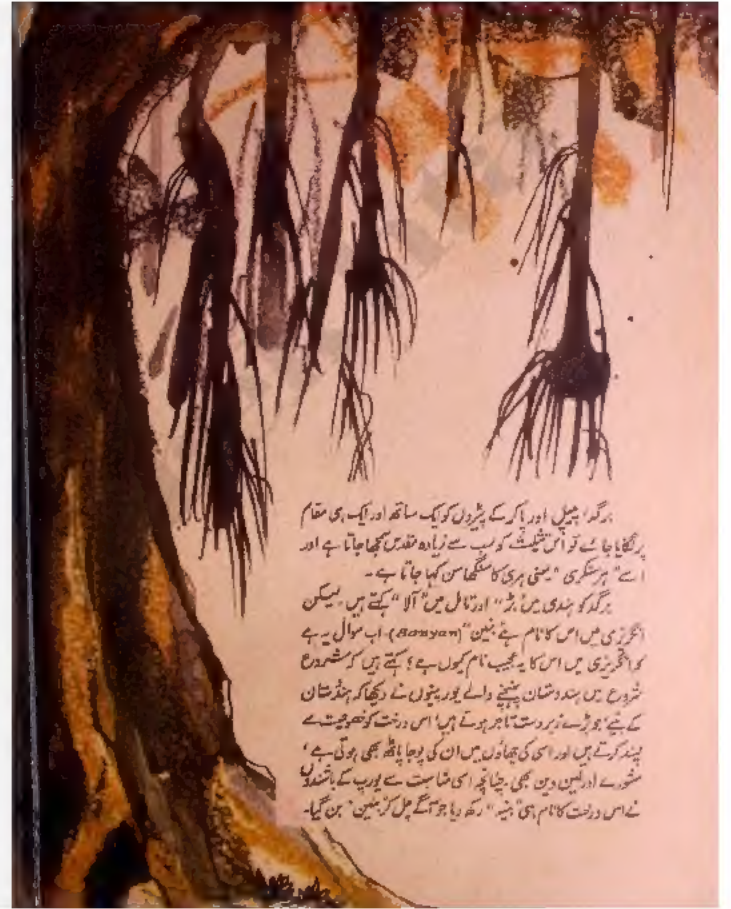 برگد، پیپل اور پاکر کے پیڑوں کو ایک ساتھ اور ایک ہی مقام
پر لگایا جائے تو اس تثلیث کو سب سے زیادہ مقدس سمجھا جاتا ہے اور
اسے "ہر سنکری" یعنی ہری کا سنگھاسن کہا جاتا ہے۔
برگد کو ہندی میں "بڑ" اور تامل میں "آلا" کہتے ہیں لیکن
انگریزی میں اس کا نام ہے بنین "(Banyan)۔ اب سوال یہ ہے
کہ انگریزی میں اس کا یہ عجیب نام کیوں ہے؟ کہتے ہیں کہ شروع
شروع میں ہندوستان پہنچنے والے یورپینوں نے دیکھا کہ ہندستان
کے بنیے، جو بڑے زبردست تاجر ہوتے ہیں، اس درخت کو خصوصیت سے
پسند کرتے ہیں اور اسی کی چھاؤں میں ان کی پوجا پاٹھ بھی ہوتی ہے،
مشورے اور لین دین بھی۔ چنانچہ اسی مناسبت سے یورپ کے باشندوں
نے اس درخت کا نام ہی "بنیہ" رکھ دیا جو آگے چل کر "بنین" بن گیا۔